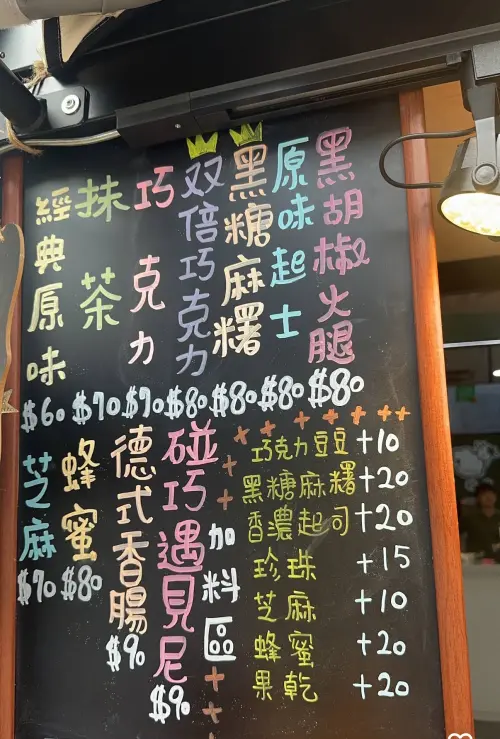 經典原味
$60
抹茶
$70
巧克力
$70
双倍巧克力
$80
黑糖麻糬
$80
原味起士
$80
黑胡椒火腿
$80
芝麻
$70
蜂蜜
$80
德式香腸
$90
碰巧遇見尼
$90
加料區
巧克力豆豆+10
黑糖麻糬+20
香濃起司+20
珍珠+15
芝麻+10
蜂蜜+20
果乾+20